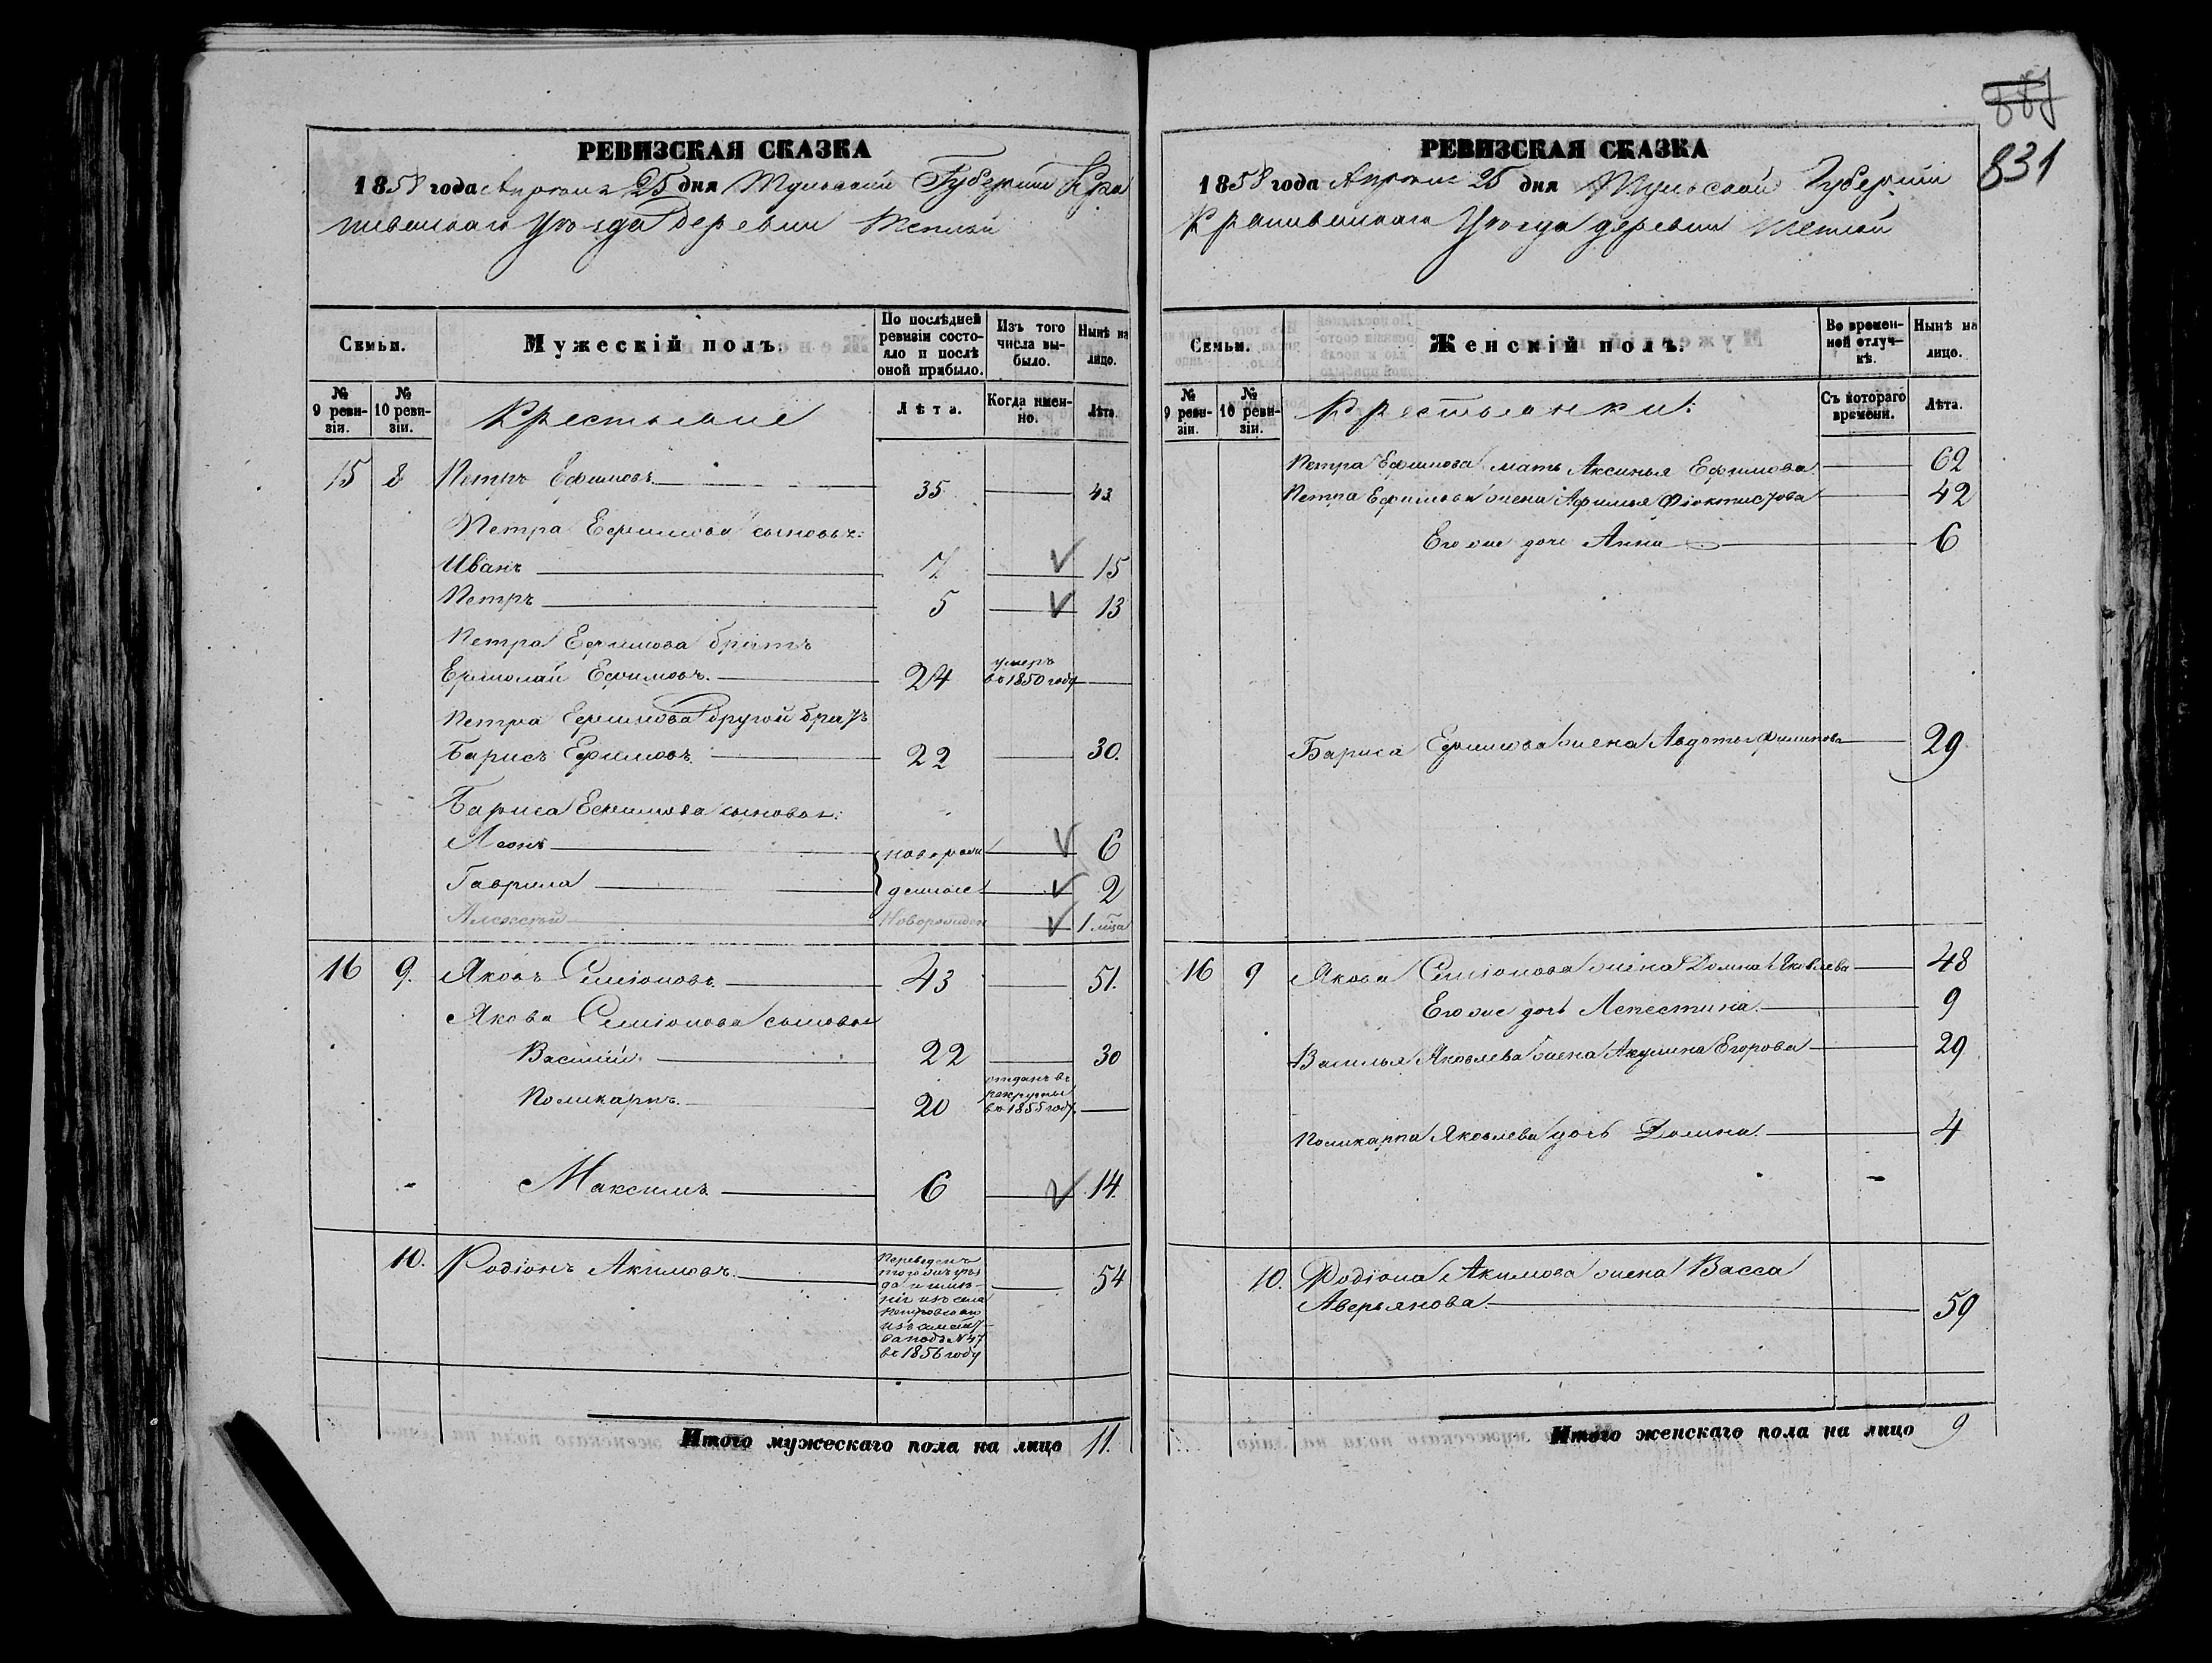 РЕВИЗСКАЯ СКАЗКА
1858 года Апреля 25 дня Тульской Губернии Кра
пивенскаго Уѣзда Деревни Теплой
Семьи.
Мужескій полъ.
По послѣдней ревизіи состояло и послѣ оной прибыло.
Изъ того числа выбыло.
Нынѣ на лицо.
№ 9 ревизіи.
№ 10 ревизіи.
Крестьяне
Лѣта.
Когда именно.
Лѣта.
15 8 Петръ Ефимовъ 35 43
Петра Ефимова сыновья:
Иванъ 7 15
Петръ 5 13
Петра Ефимова братъ
Ермолай Ефимовъ. 24 умеръ въ 1850 году
Петра Ефимова другой братъ
Барисъ Ефимовъ. 22 30.
Бариса Ефимова сыновья:
Леонъ новорож 6
Гаврила денные 2
Алексѣй Новорожден 1 мѣца
16 9. Яковъ Семіоновъ. 43 51.
Якова Семіонова сыновья
Василій. 22 30
Поликарпъ. 20 отданъ въ рекруты въ 1855 году.
Максимъ 6 14.
10. Родіонъ Акимовъ. 54
Переведенъ
тогожъ уѣз
да и имѣ-
нія изъ села
Петровскаго
изъ семейс
ва подъ №47
въ 1856 году
Итого мужескаго пола на лицо 11.
831
РЕВИЗСКАЯ СКАЗКА
1858 года Апреля 25 дня Тульской Губернии
Крапивенскаго Уѣзда деревни Теплой
Семьи.
Женскій полъ.
Во временной отлучкѣ.
Нынѣ на лицо.
№ 9 ревизіи.
№ 10 ревизіи.
Крестьянки:
Съ котораго времени.
Лѣта.
Петра Ефимова мать Аксинья Ефимова 62
Петра Ефимова жена Афимья Фіоктистова 42
Его же дочь Анна 6
Бариса Ефимова жена Авдотья Филипова 29
16 9 Якова Семіонова жена Домна Яковлева 48
Его же дочь Лепестина. 9
Василья Яковлева жена Акулина Егорова 29
Поликарпа Яковлева дочь Домна. 4
10. Родіона Акимова жена Васса
Аверьянова. 59
Итого женскаго пола на лицо 9